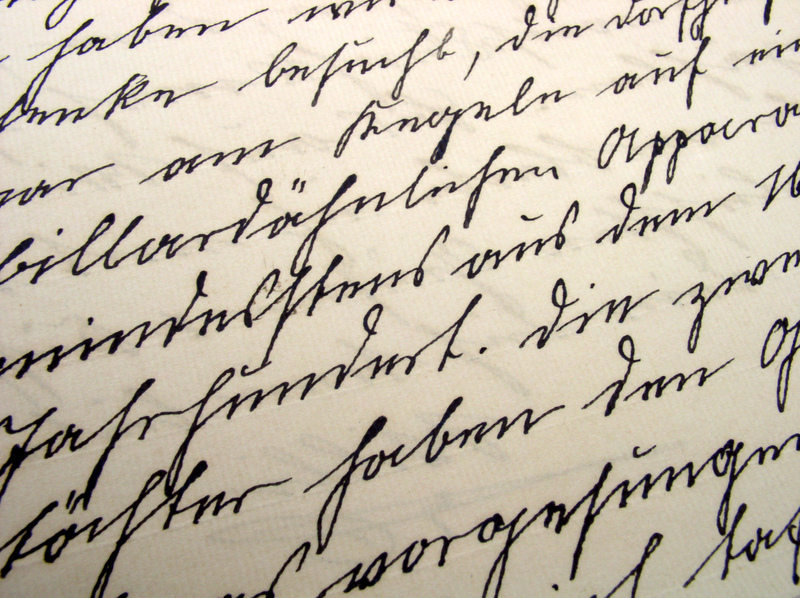 haben wir
besucht, die
war am Kegeln auf ein
billardähnlichen Appara
mindesstens aus dem 16
Jahrhundert. Die zwe
töchter haben den G
vorgesungen